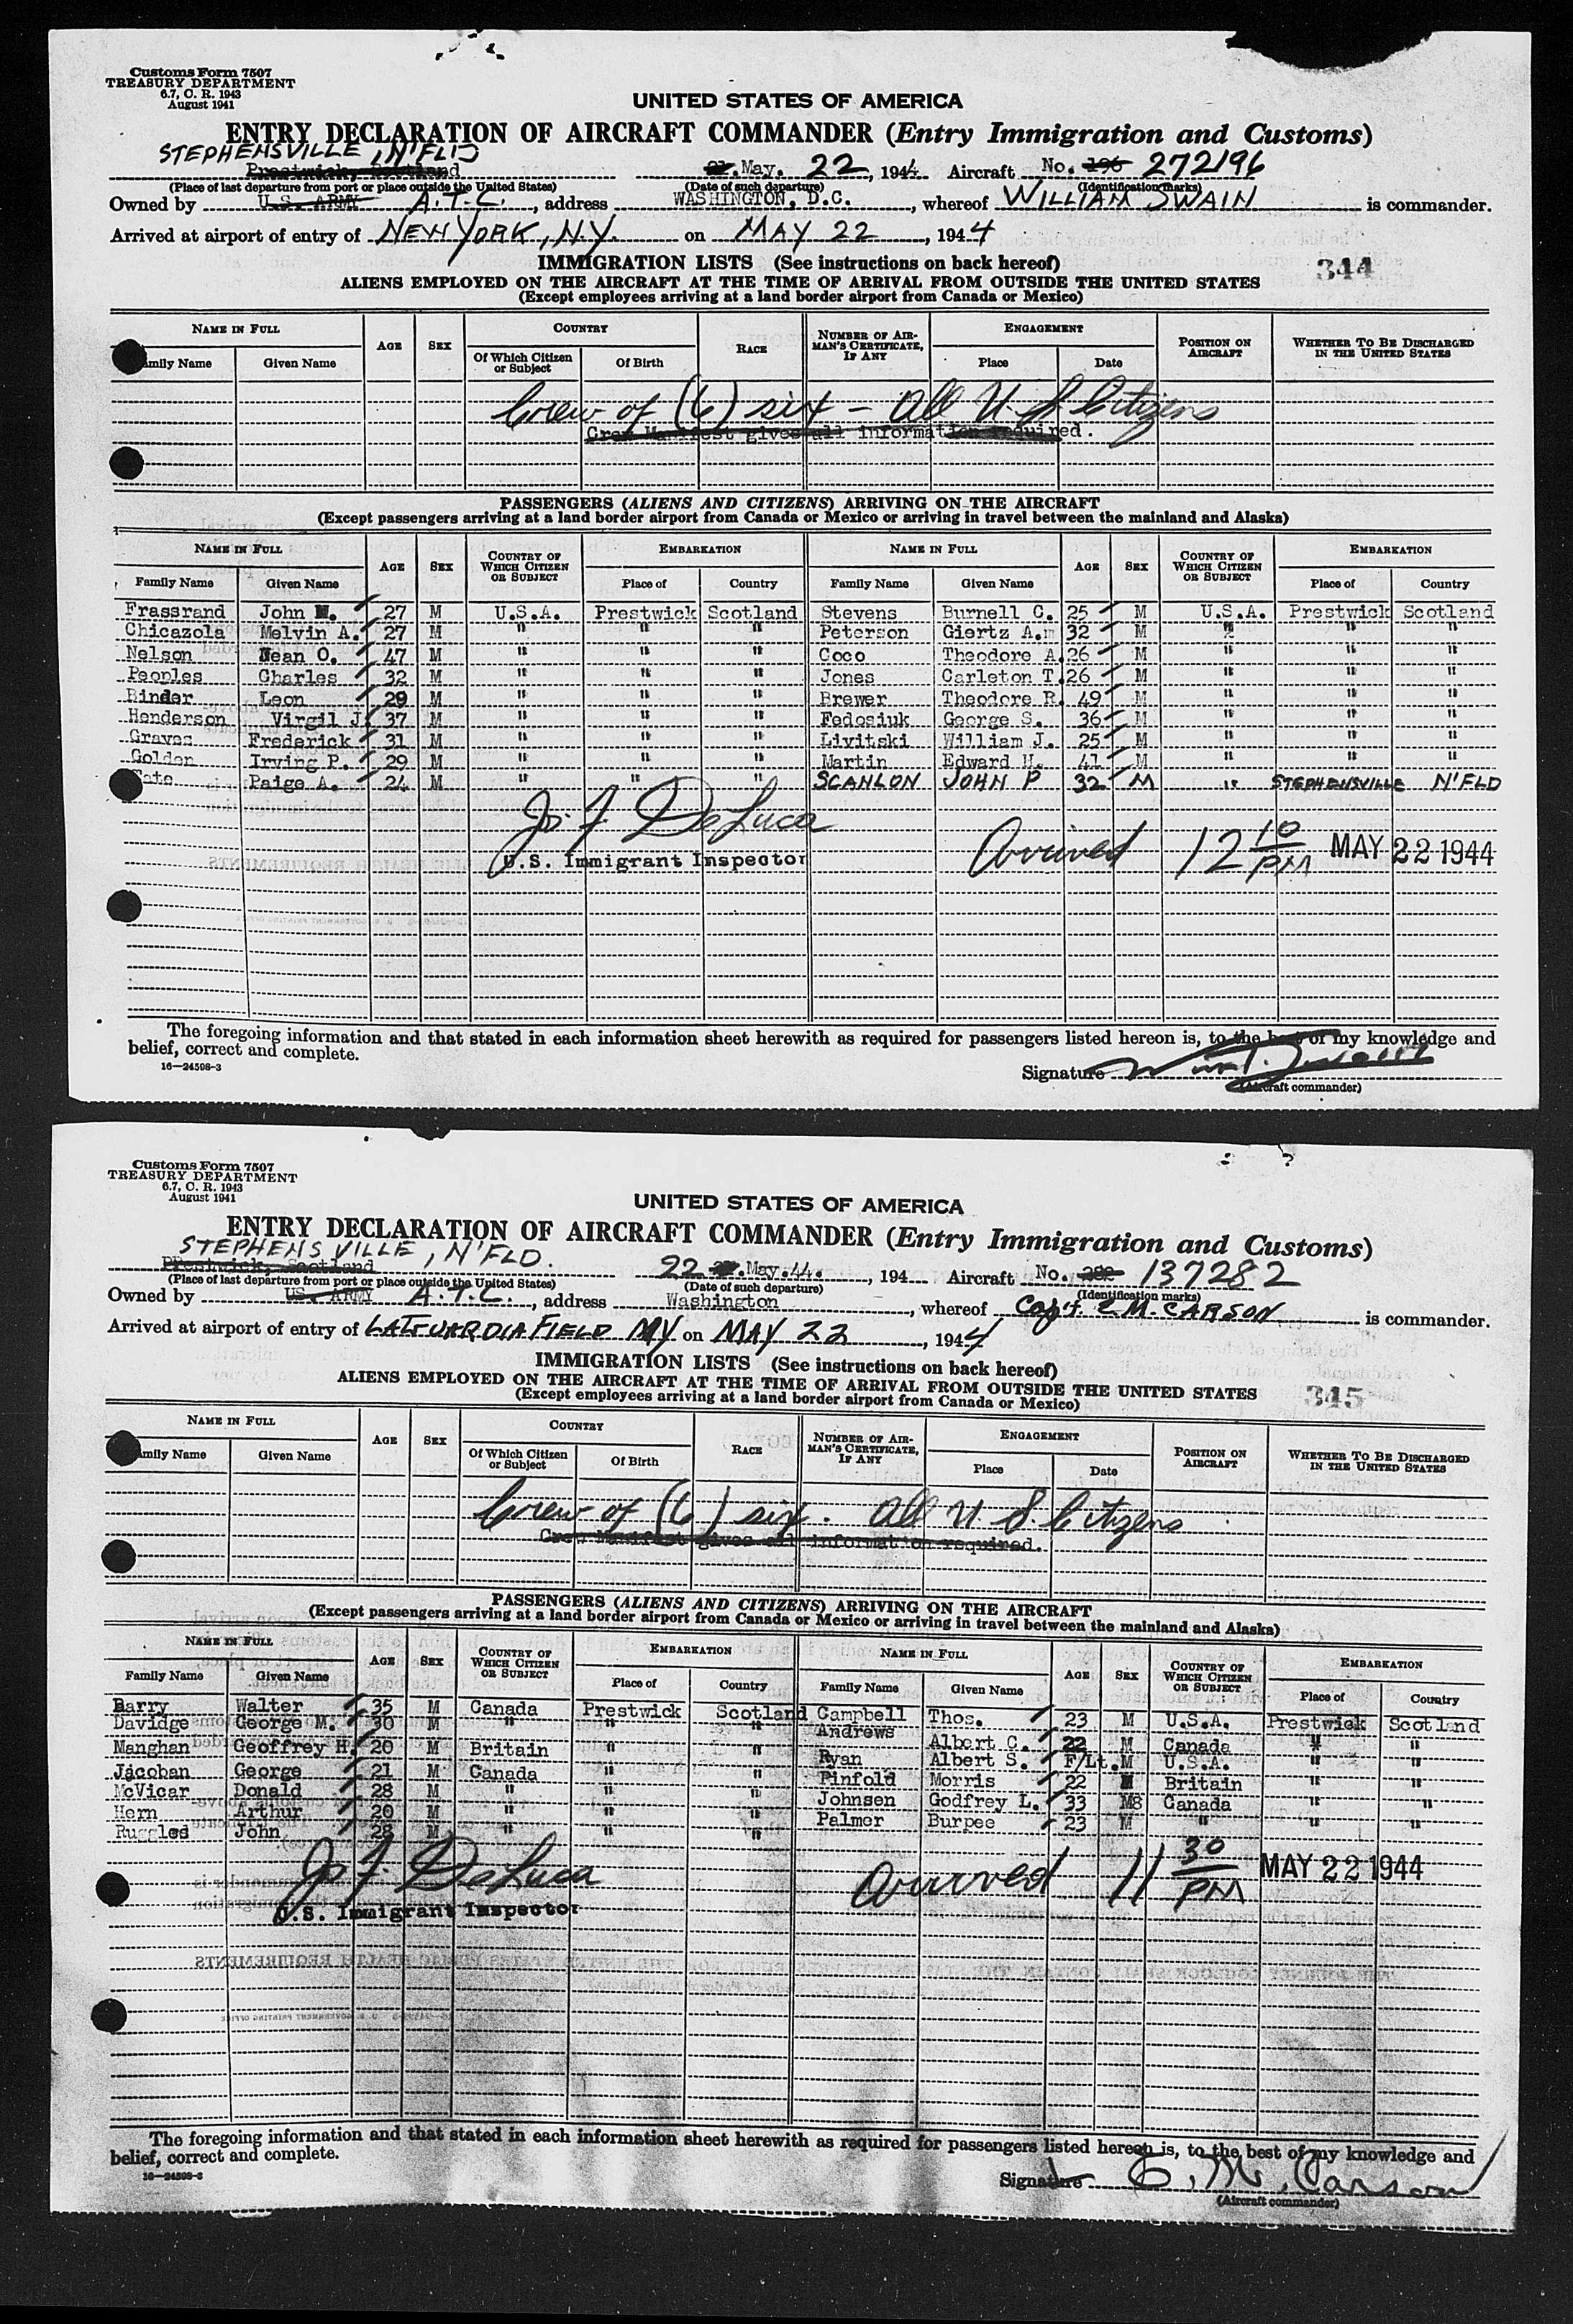 Customs Form 7507
TREASURY DEPARTMENT
6.7, C. R. 1943
August 1941
UNITED STATES OF AMERICA
ENTRY DECLARATION OF AIRCRAFT COMMANDER (Entry Immigration and Customs)
STEPHENSVILLE, N'FLD
Prestwick, Scotland 21 May. 22, 1944 Aircraft No. 196 272196
(Place of last departure from port or place outside the United States) (Date of such departure) (Identification marks)
Owned by U.S. ARMY A.T.C., address WASHINGTON, D.C., whereof WILLIAM SWAIN is commander.
Arrived at airport of entry of NEW YORK, N.Y. on MAY 22, 1944
IMMIGRATION LISTS (See instructions on back hereof)
344
ALIENS EMPLOYED ON THE AIRCRAFT AT THE TIME OF ARRIVAL FROM OUTSIDE THE UNITED STATES
(Except employees arriving at a land border airport from Canada or Mexico)
NAME IN FULL AGE SEX COUNTRY RACE NUMBER OF AIRMAN'S CERTIFICATE, IF ANY ENGAGEMENT POSITION ON AIRCRAFT WHETHER TO BE DISCHARGED IN THE UNITED STATES
amily Name Given Name Of Which Citizen or Subject Of Birth Place Date
Crew of (6) six - All U.S. Citizens
Crew Manifest gives all information required.
PASSENGERS (ALIENS AND CITIZENS) ARRIVING ON THE AIRCRAFT
(Except passengers arriving at a land border airport from Canada or Mexico or arriving in travel between the mainland and Alaska)
NAME IN FULL AGE SEX COUNTRY OF WHICH CITIZEN OR SUBJECT EMBARKATION NAME IN FULL AGE SEX COUNTRY OF WHICH CITIZEN OR SUBJECT EMBARKATION
Family Name Given Name Place of Country Family Name Given Name Place of Country
Frassrand John M. 27 M U.S.A. Prestwick Scotland Stevens Burnell C. 25 M U.S.A. Prestwick Scotland
Chicazola Melvin A. 27 M " " " Peterson Giertz A. 32 M " " "
Nelson Jean O. 47 M " " " Coco Theodore A. 26 M " " "
Peoples Charles 32 M " " " Jones Carleton T. 26 M " " "
Binder Leon 29 M " " " Brewer Theodore R. 49 M " " "
Henderson Virgil J. 37 M " " " Fedosiuk George S. 36 M " " "
Graves Frederick 31 M " " " Livitski William J. 25 M " " "
Golden Irving P. 29 M " " " Martin Edward H. 41 M " " "
Tate Paige A. 24 M " " " SCANLON JOHN P 32 M " STEPHENSVILLE N'FLD
Jos F DeLuca
U.S. Immigrant Inspector
Arrived 12 10 PM MAY 22 1944
The foregoing information and that stated in each information sheet herewith as required for passengers listed hereon is, to the best of my knowledge and
belief, correct and complete.
16—24598-3
Signature Wm. Swain
(Aircraft commander)
Customs Form 7507
TREASURY DEPARTMENT
6.7, C. R. 1943
August 1941
UNITED STATES OF AMERICA
ENTRY DECLARATION OF AIRCRAFT COMMANDER (Entry Immigration and Customs)
STEPHENSVILLE, N'FLD.
Prestwick, Scotland 22 May. 44., 194 Aircraft No. 282 137282
(Place of last departure from port or place outside the United States) (Date of such departure) (Identification marks)
Owned by US. ARMY A.T.C., address Washington, whereof Capt. E M. CARSON is commander.
Arrived at airport of entry of LAGUARDIA FIELD NY on MAY 22, 1944
IMMIGRATION LISTS (See instructions on back hereof)
ALIENS EMPLOYED ON THE AIRCRAFT AT THE TIME OF ARRIVAL FROM OUTSIDE THE UNITED STATES
345
(Except employees arriving at a land border airport from Canada or Mexico)
NAME IN FULL AGE SEX COUNTRY RACE NUMBER OF AIRMAN'S CERTIFICATE, IF ANY ENGAGEMENT POSITION ON AIRCRAFT WHETHER TO BE DISCHARGED IN THE UNITED STATES
amily Name Given Name Of Which Citizen or Subject Of Birth Place Date
Crew of (6) six. All U. S Citizens
Crew Manifest gives all information required.
PASSENGERS (ALIENS AND CITIZENS) ARRIVING ON THE AIRCRAFT
(Except passengers arriving at a land border airport from Canada or Mexico or arriving in travel between the mainland and Alaska)
NAME IN FULL AGE SEX COUNTRY OF WHICH CITIZEN OR SUBJECT EMBARKATION NAME IN FULL AGE SEX COUNTRY OF WHICH CITIZEN OR SUBJECT EMBARKATION
Family Name Given Name Place of Country Family Name Given Name Place of Country
Barry Walter 35 M Canada Prestwick Scotland Campbell Thos. 23 M U.S.A. Prestwick Scotland
Davidge George M. 30 M " " " Andrews Albert C. 22 M Canada " "
Manghan Geoffrey H. 20 M Britain " " Ryan Albert S. F/Lt. M U.S.A. " "
Jacoban George 21 M Canada " " Pinfold Morris 22 M Britain " "
McVicar Donald 28 M " " " Johnsen Godfrey L. 33 M Canada " "
Hern Arthur 20 M " " " Palmer Burpee 23 M " " "
Ruggles John 28 M " " "
Jos F DeLuca
U.S. Immigrant Inspector
Arrived 11 30 PM MAY 22 1944
The foregoing information and that stated in each information sheet herewith as required for passengers listed hereon is, to the best of my knowledge and
belief, correct and complete.
16—24598-3
Signature E. M. Carson
(Aircraft commander)